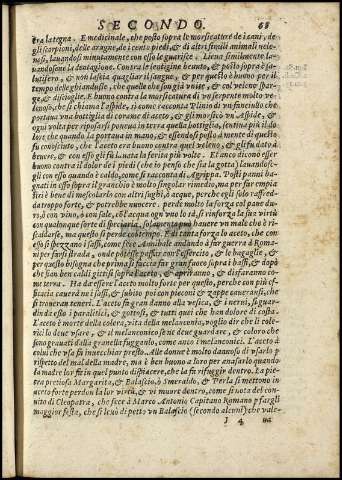 SECONDO. 68
era lategna. E medicinale, che posto sopra le morsicature de i cani, de
gli scorpioni, delle aragne, de i cento piedi, & di altri simili animali nele-
nosi, lauandosi minutamente con esso le guarisce. Lieua similmente la-
uandosene
Contra le lentigine beuuto, & posto sopra è sa-
lutifero, & non lascia quagliar il sangue, & per questo è buono per il
tempo delle ghiandusse, che quelle che son già
& col veleno spar-
ge, & discioglie. E buono contra le morsicature di vn serpente molto ve-
lenoso, che si chiama l'aspide, si come racconta Plinio di vn fanciullo che
portaua vna bottiglia di corame di aceto, & gli morsicò vn Aspide, &
ogni volta per riposarsi poneua in terra quella bottiglia, sentiua più il do
lore che quando la portaua in mano, & essendosi posto à mente di questo
fu conosciuto, che l'aceto era buono contra quel veleno, & gli fu dato à
beuere, & con esso gli fu lauata la ferita più volte. Et anco dicono esser
buono contra il dolor dei piedi (che io penso che sia la gotta) lauandosi-
gli con esso quando è caldo, come si racconta di Agrippa. Posti panni ba-
gnati in esso sopra il granchio è molto singolar rimedio, ma per far empia
stri è bene di mescolarlo con altri sughi, ò acque, perche egli solo raffred-
da troppo forte, & potrebbe nuocere. perde molto la forza col pane du-
rò con vino, ò con sale, cò l'acqua ogn'vno lo sà, si rinforza la sua virtù
con qualonque sorte di speciaria, solamente può hauere vn male che si ri-
scaldarà, ma questo si perde col tempo. E di tanta forza lo aceto, che con
esso si spezzano i sassi, come fece Annibale andando à far guerra à Roma-
ni per farsi strada, onde potesse passar con l'essercito, & le bagaglie, &
per questo bisogna che prima si faccia far gran fuoco sopra i sassi, & dapò
che sian ben caldi gittisi sopra l'aceto, & apriranno, & disfaranno co-
me terra. Ha da esser l'aceto molto forte per questo, perche con più effi-
ficacia cauerà ne i sassi, & subito poi con picconi & zappe caueransi, che
si troueran teneri. L'aceto fa gran danno alla vesica, & i nerui, si guar-
din di esso i paralitici, & gottosi, & tutti quei che han dolore di costa.
L'aceto è morte della colera, vita della melanconia, voglio dir che il cole-
rici lo deue vsare, & il melanconico se ne deue guardare, & coloro che
sono grauati dalla granella fuggano, come anco i melanconici. L'aceto à
colui che vsa fa inuecchiar presto. Alle donne è molto dannoso di vsarlo per
rispetto del mal della madre, ma è ben buono à loro per anasarlo quando
la madre lor fa in quel punto dispiacere, che la fa rifuggir dentro. La pie-
tra pretiosa Margarita, & Balascio, ò Smeraldo, & Perla si mettono in
aceto forte perdon la lor virtù, & vi muore dentro, come si nota del con-
uito di Cleopatra, che fece à Marco Antonio Capitano Romano p fargli
maggior festa, che si leuò di petto vn Balascio (secondo alcuni) che vale-
I 4 ua